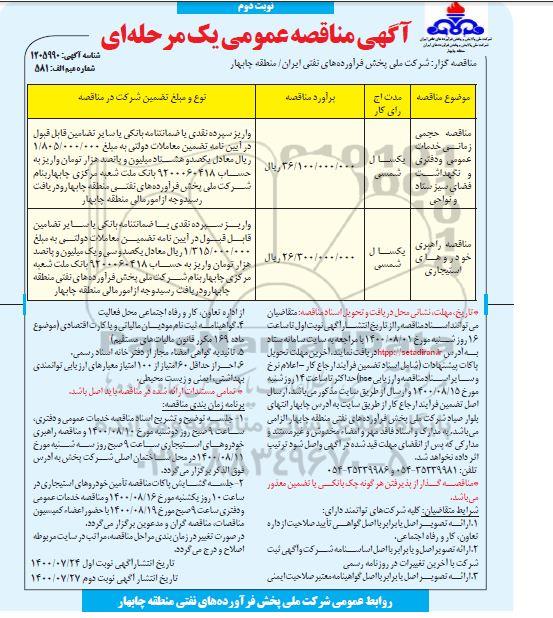 نوبت دوم
آگهی مناقصه عمومی یک مرحله‌ای
شناسه آگهی: ۱۲۰۵۹۹۰
شماره میم الف: ۵۸۱
شرکت ملی پالایش و پخش فرآورده‌های نفتی ایران
شرکت ملی پخش فرآورده‌های نفتی ایران
منطقه چابهار
مناقصه گزار: شرکت ملی پخش فرآورده‌های نفتی ایران/ منطقه چابهار
موضوع مناقصه
مدت اجرای کار
برآورد مناقصه
نوع و مبلغ تضمین شرکت در مناقصه
مناقصه حجمی زمانی خدمات عمومی ودفتری و نگهداشت فضای سبز ستاد و نواحی
یکسال شمسی
۳۶/۱۰۰/۰۰۰/۰۰۰ ریال
واریز سپرده نقدی یا ضمانتنامه بانکی یا سایر تضامین قابل قبول
در آیین نامه تضمین معاملات دولتی به مبلغ ۱/۸۰۵/۰۰۰/۰۰۰
ریال معادل یکصدو هشتاد میلیون و پانصد هزار تومان واریز به
حساب ۹۲۰۰۰۶۰۴۱۸ بانک ملت شعبه مرکزی چابهار بنام
شرکت ملی پخش فرآورده‌های نفتی منطقه چابهار ودریافت
رسید وجه از امور مالی منطقه چابهار
مناقصه راهبری خودروهای استیجاری
یکسال شمسی
۲۶/۳۰۰/۰۰۰/۰۰۰ ریال
واریز سپرده نقدی یا ضمانتنامه بانکی یا سایر تضامین
قابل قبول در آیین نامه تضمین معاملات دولتی به مبلغ
۱/۳۱۵/۰۰۰/۰۰۰ ریال معادل یکصدوسی و یک میلیون و پانصد
هزار تومان واریز به حساب ۹۲۰۰۰۶۰۴۱۸ بانک ملت شعبه
مرکزی چابهار بنام شرکت ملی پخش فرآورده‌های نفتی منطقه
چابهار ودریافت رسید وجه از امور مالی منطقه چابهار
*تاریخ، مهلت، نشانی محل دریافت و تحویل اسناد مناقصه: متقاضیان
می‌توانند اسناد مناقصه را از تاریخ انتشار آگهی نوبت اول تا ساعت
۱۶ روز شنبه مورخ ۱۴۰۰/۰۸/۰۱ با مراجعه به سایت سامانه ستاد
به آدرس http://setadiran.ir دریافت نمایند. آخرین مهلت تحویل
پاکات پیشنهادات (شامل اسناد تضمین فرآیند ارجاع کار - اعلام نرخ
و سایر اسناد مناقصه و ارزیابی hse) حداکثر تا ساعت ۱۴ روز شنبه
مورخ ۱۴۰۰/۰۸/۱۵ و ارسال از طریق سایت مذکور می‌باشد. ارسال
اصل تضمین فرآیند ارجاع کار از طریق سایت به آدرس چابهار انتهای
بلوار صیاد شرکت ملی پخش فرآورده‌های نفتی منطقه چابهار الزامی
می‌باشد، به مدارک و اسناد فاقد مهر و امضاء مخدوش و غیر مستند و
مدارکی که پس از انقضای مهلت قید شده در آگهی واصل شود ترتیب
اثر داده نخواهد شد.
تلفن: ۳۵۳۳۹۹۸۱-۰۵۴ و ۳۵۳۳۹۹۸۶-۰۵۴
*مناقصه گذار از پذیرفتن هرگونه چک بانکی یا تضمین معذور
می‌باشد.
شرایط متقاضیان: کلیه شرکت‌های توانمند دارای:
۱. ارائه تصویر اصل یا برابر با اصل گواهی تأیید صلاحیت از اداره
تعاون، کار و رفاه اجتماعی.
۲. ارائه تصویر اصل و یا برابر با اصل اساسنامه شرکت و آگهی ثبت
شرکت با آخرین تغییرات در روزنامه رسمی
۳. ارائه تصویر اصل یا برابر با اصل گواهینامه معتبر صلاحیت ایمنی
از اداره تعاون، کار و رفاه اجتماعی محل فعالیت
۴. گواهینامه ثبت نام مودیان مالیاتی و یا کارت اقتصادی (موضوع
ماده ۱۶۹ مکرر قانون مالیات های مستقیم)
۵. تائیدیه گواهی امضاء مجاز از دفترخانه اسناد رسمی.
۶. احراز حداقل ۶۰ امتیاز از ۱۰۰ امتیاز معیارهای ارزیابی توانمندی
بهداشتی، ایمنی و زیست محیطی.
* تمامی مستندات ارائه شده در مناقصه باید اصل باشد.*
برنامه زمان بندی مناقصه:
۱- جلسه توضیح و تشریح اسناد مناقصه خدمات عمومی و دفتری،
ساعت ۹ صبح روز دوشنبه مورخ ۱۴۰۰/۰۸/۱۰ و مناقصه راهبری
خودروهای استیجاری ساعت ۹ صبح روز سه شنبه مورخ
۱۴۰۰/۰۸/۱۱ در محل ساختمان اصلی شرکت پخش به آدرس
فوق الذکر برگزار می‌گردد.
۲- جلسه گشایش پاکات مناقصه تأمین خودروهای استیجاری در
ساعت ۱۰ روز یکشنبه مورخ ۱۴۰۰/۰۸/۱۶ و مناقصه خدمات عمومی
و دفتری ساعت ۹ صبح مورخ ۱۴۰۰/۰۸/۱۹ با حضور اعضاء کمیسیون
مناقصات، مناقصه گران و مدعوین برگزار می‌گردد.
در صورت تغییر در زمان بندی مراحل مناقصه، مراتب در سایت مربوطه
اصلاح و درج می‌گردد.
تاریخ انتشار آگهی نوبت اول ۱۴۰۰/۰۷/۲۴
تاریخ انتشار آگهی نوبت دوم ۱۴۰۰/۰۷/۲۷
روابط عمومی شرکت ملی پخش فرآورده‌های نفتی منطقه چابهار